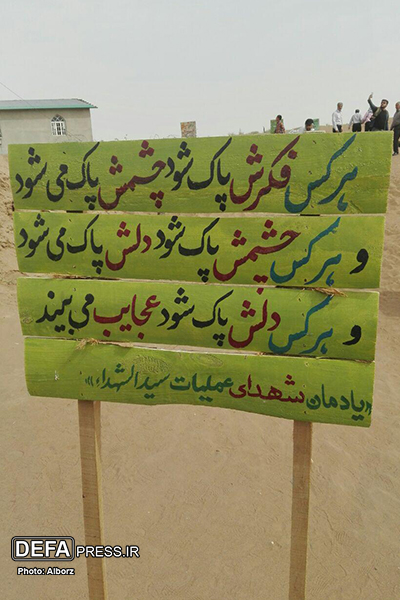 هرکس فکرش پاک شود چشمش پاک می شود
و هرکس چشمش پاک شود دلش پاک می شود
و هرکس دلش پاک شود عجایب می بیند
«یادمان شهدای عملیات سیدالشهداء»
DEFAPRESS.IR
Photo: Alborz